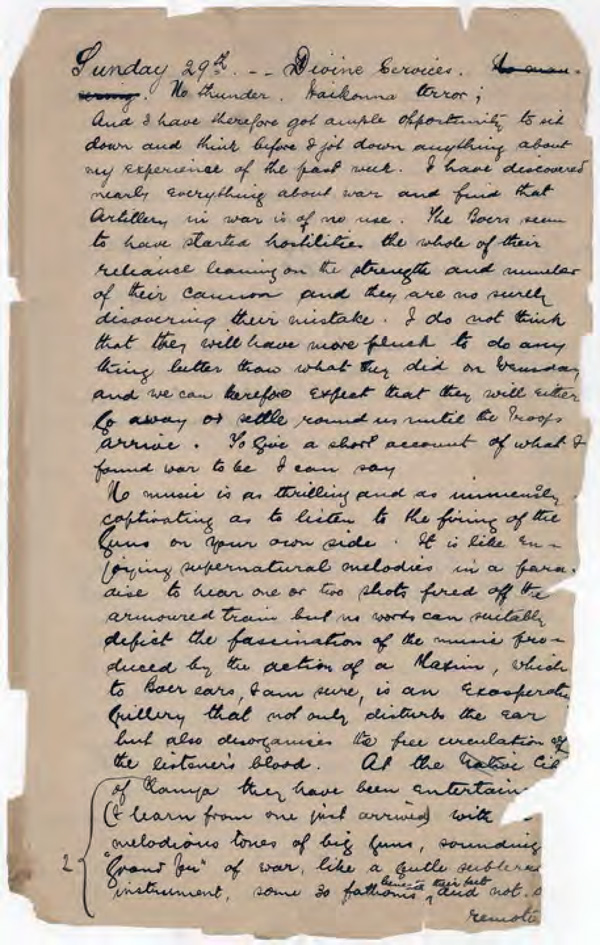 Sunday 29th. -- Divine Services. No man-
. No thunder. Haikonna terror;
And I have therefore got ample opportunity to sit
down and think before I jot down anything about
my experience of the past week. I have discovered
nearly everything about war and find that
Artillery in war is of no use. The Boers seem
to have started hostilities the whole of their
reliance leaning on the strength and number
of their cannon and they are no surely
discovering their mistake. I do not think
that they will have more pluck to do any
thing better than what they did on Wensday
and we can therefore expect that they will either
go away or settle round us until the Troops
arrive. To Give a short account of what I
found war to be I can say
No music is as thrilling and as immensely
captivating as to listen to the firing of the
Guns on your own side. It is like En-
joying supernatural melodies in a para-
dise to hear one or two shots fired off the
armoured train but no words can suitably
depict the fascination of the music pro-
duced by the action of a Maxim, which
to Boer ears, I am sure, is an Exasperatin
that not only disturbs the ear
but also disorganises the free circulation of
the listener's blood. At the Native
of Kanya they have been entertain
(I learn from one just arrived) with
melodious tones of big Guns, sounding
"Grand" of war, like a Gentle
beneath their feet
instrument, some 30 fathoms, and not
remote
2